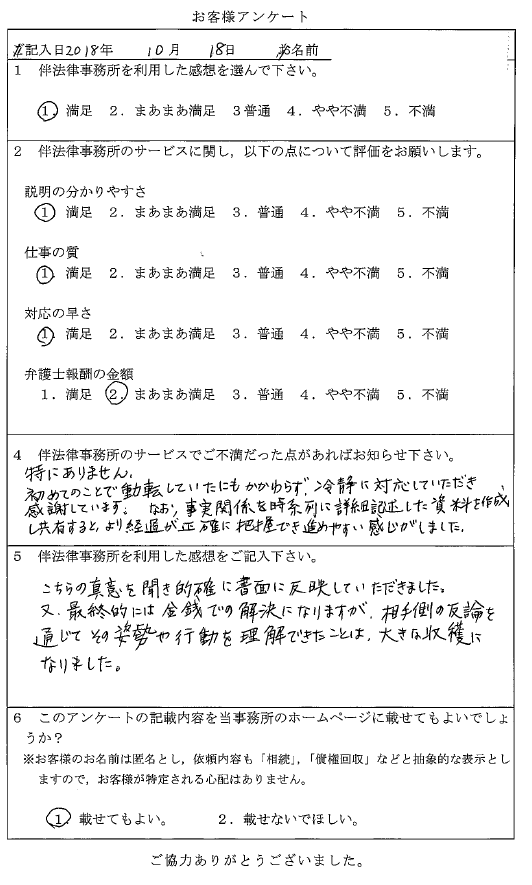 お客様アンケート
ご記入日2018年 10月 18日 お名前
1 伴法律事務所を利用した感想を選んで下さい。
1. 満足 2．まあまあ満足 3普通 4．やや不満 5．不満
2 伴法律事務所のサービスに関し，以下の点について評価をお願いします。
説明の分かりやすさ
1 満足 2．まあまあ満足 3．普通 4．やや不満 5．不満
仕事の質
1. 満足 2．まあまあ満足 3．普通 4．やや不満 5．不満
対応の早さ
1. 満足 2．まあまあ満足 3．普通 4．やや不満 5．不満
弁護士報酬の金額
1．満足 2．まあまあ満足 3．普通 4．やや不満 5．不満
4 伴法律事務所のサービスでご不満だった点があればお知らせ下さい。
特にありません。
初めてのことで動転していたにもかかわらず，冷静に対応していただき
感謝しています。 なお，事実関係を時系列に詳細記述した資料を作成
し共有すると，より経過が正確に把握でき進めやすい感じがしました。
5 伴法律事務所を利用した感想をご記入下さい。
こちらの真意を聞き的確に書面に反映していただきました。
又，最終的には金銭での解決になりますが，相手側の反論を
通じてその姿勢や行動を理解できたことは，大きな収穫に
なりました。
6 このアンケートの記載内容を当事務所のホームページに載せてもよいでしょ
うか？
※お客様のお名前は匿名とし，依頼内容も「相続」，「債権回収」などと抽象的な表示とし
ますので，お客様が特定される心配はありません。
1. 載せてもよい。 2．載せないでほしい。
ご協力ありがとうございました。